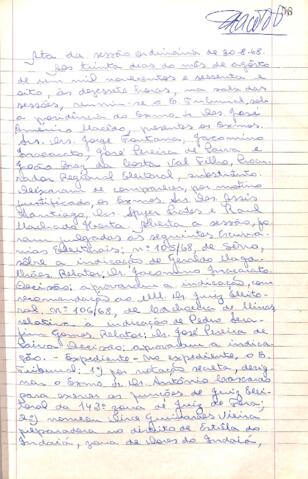 Ata da sessão ordinária de 30-8-68.
Aos trinta dias do mês de agosto
de um mil novecentos e sessenta e
oito, às dezessete horas, na sala das
sessões, reuniu-se o E. Tribunal, sob
a presidência do Exmo. Sr. Des. José
Américo Macêdo, presentes os Exmos.
Srs. Drs. Jorge Fontana, Jacomino
Inacarato, José Pereira de Paiva e
João Boa da Costa Val Filho, Procu-
rador Regional Eleitoral, substituto.
Deixaram de comparecer, por motivo
justificado, os Exmos. Srs. Des. Assis
Santiago, Drs. e Raul
Machado Horta. Aberta a sessão, fo-
ram julgados os seguintes
Eleitorais: nº 105/68, de Sêrro,
sôbre a indicação de Geraldo Maga-
lhães. Relator: Dr. Jacomino Inacarato.
Decisão: aprovaram a indicação, com
recomendação ao MM. Dr. Juiz Eleito-
ral. Nº 106/68, de de Minas,
relativo à indicação de Pedro
Gomes. Relator: Dr. José Pereira de
Paiva. Decisão: aprovaram a indica-
ção. - Expediente - No expediente, o E.
Tribunal: 1º) por votação secreta, desig-
nou o Exmo. Sr. Dr. Antônio
para exercer as funções de Juiz Elei-
toral da 143ª zona de Juiz de Fora;
2º) nomeou Guimarães Vieira
preparadora no distrito de Estrêla do
Indaiá, zona de Dores do Indaiá,